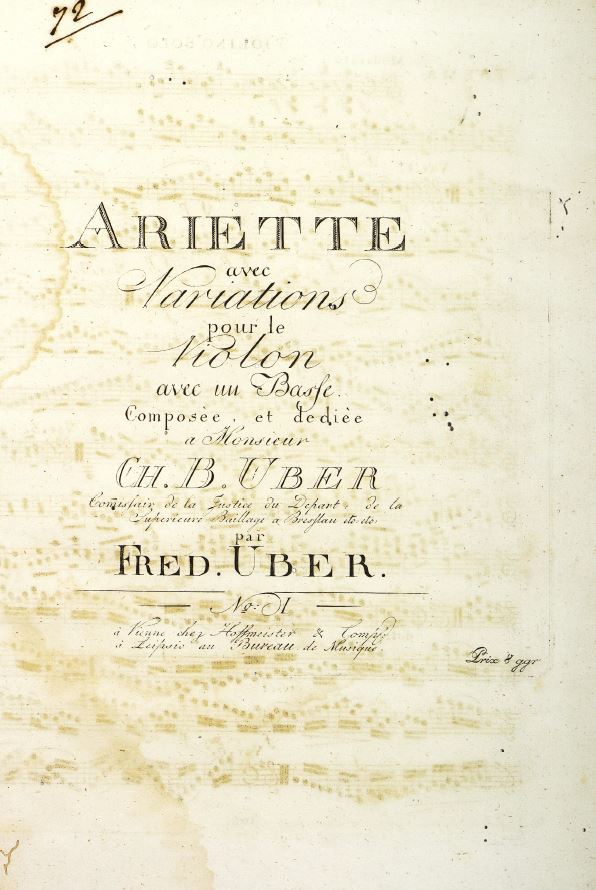 72
ARIETTE
avec
Variations
pour le
Violon
avec un Basse.
Composèe, et dedièe
a Monsieur
CH. B. UBER
Com̄issair de la Justice du Depart: de la
Superieure Baillage a Bresslau etc etc
par
FRED. UBER.
No: I
à Vienne chez Hoffmeister & Comp:
à Leipsic au Bureau de Musique
Prix 8 ggr